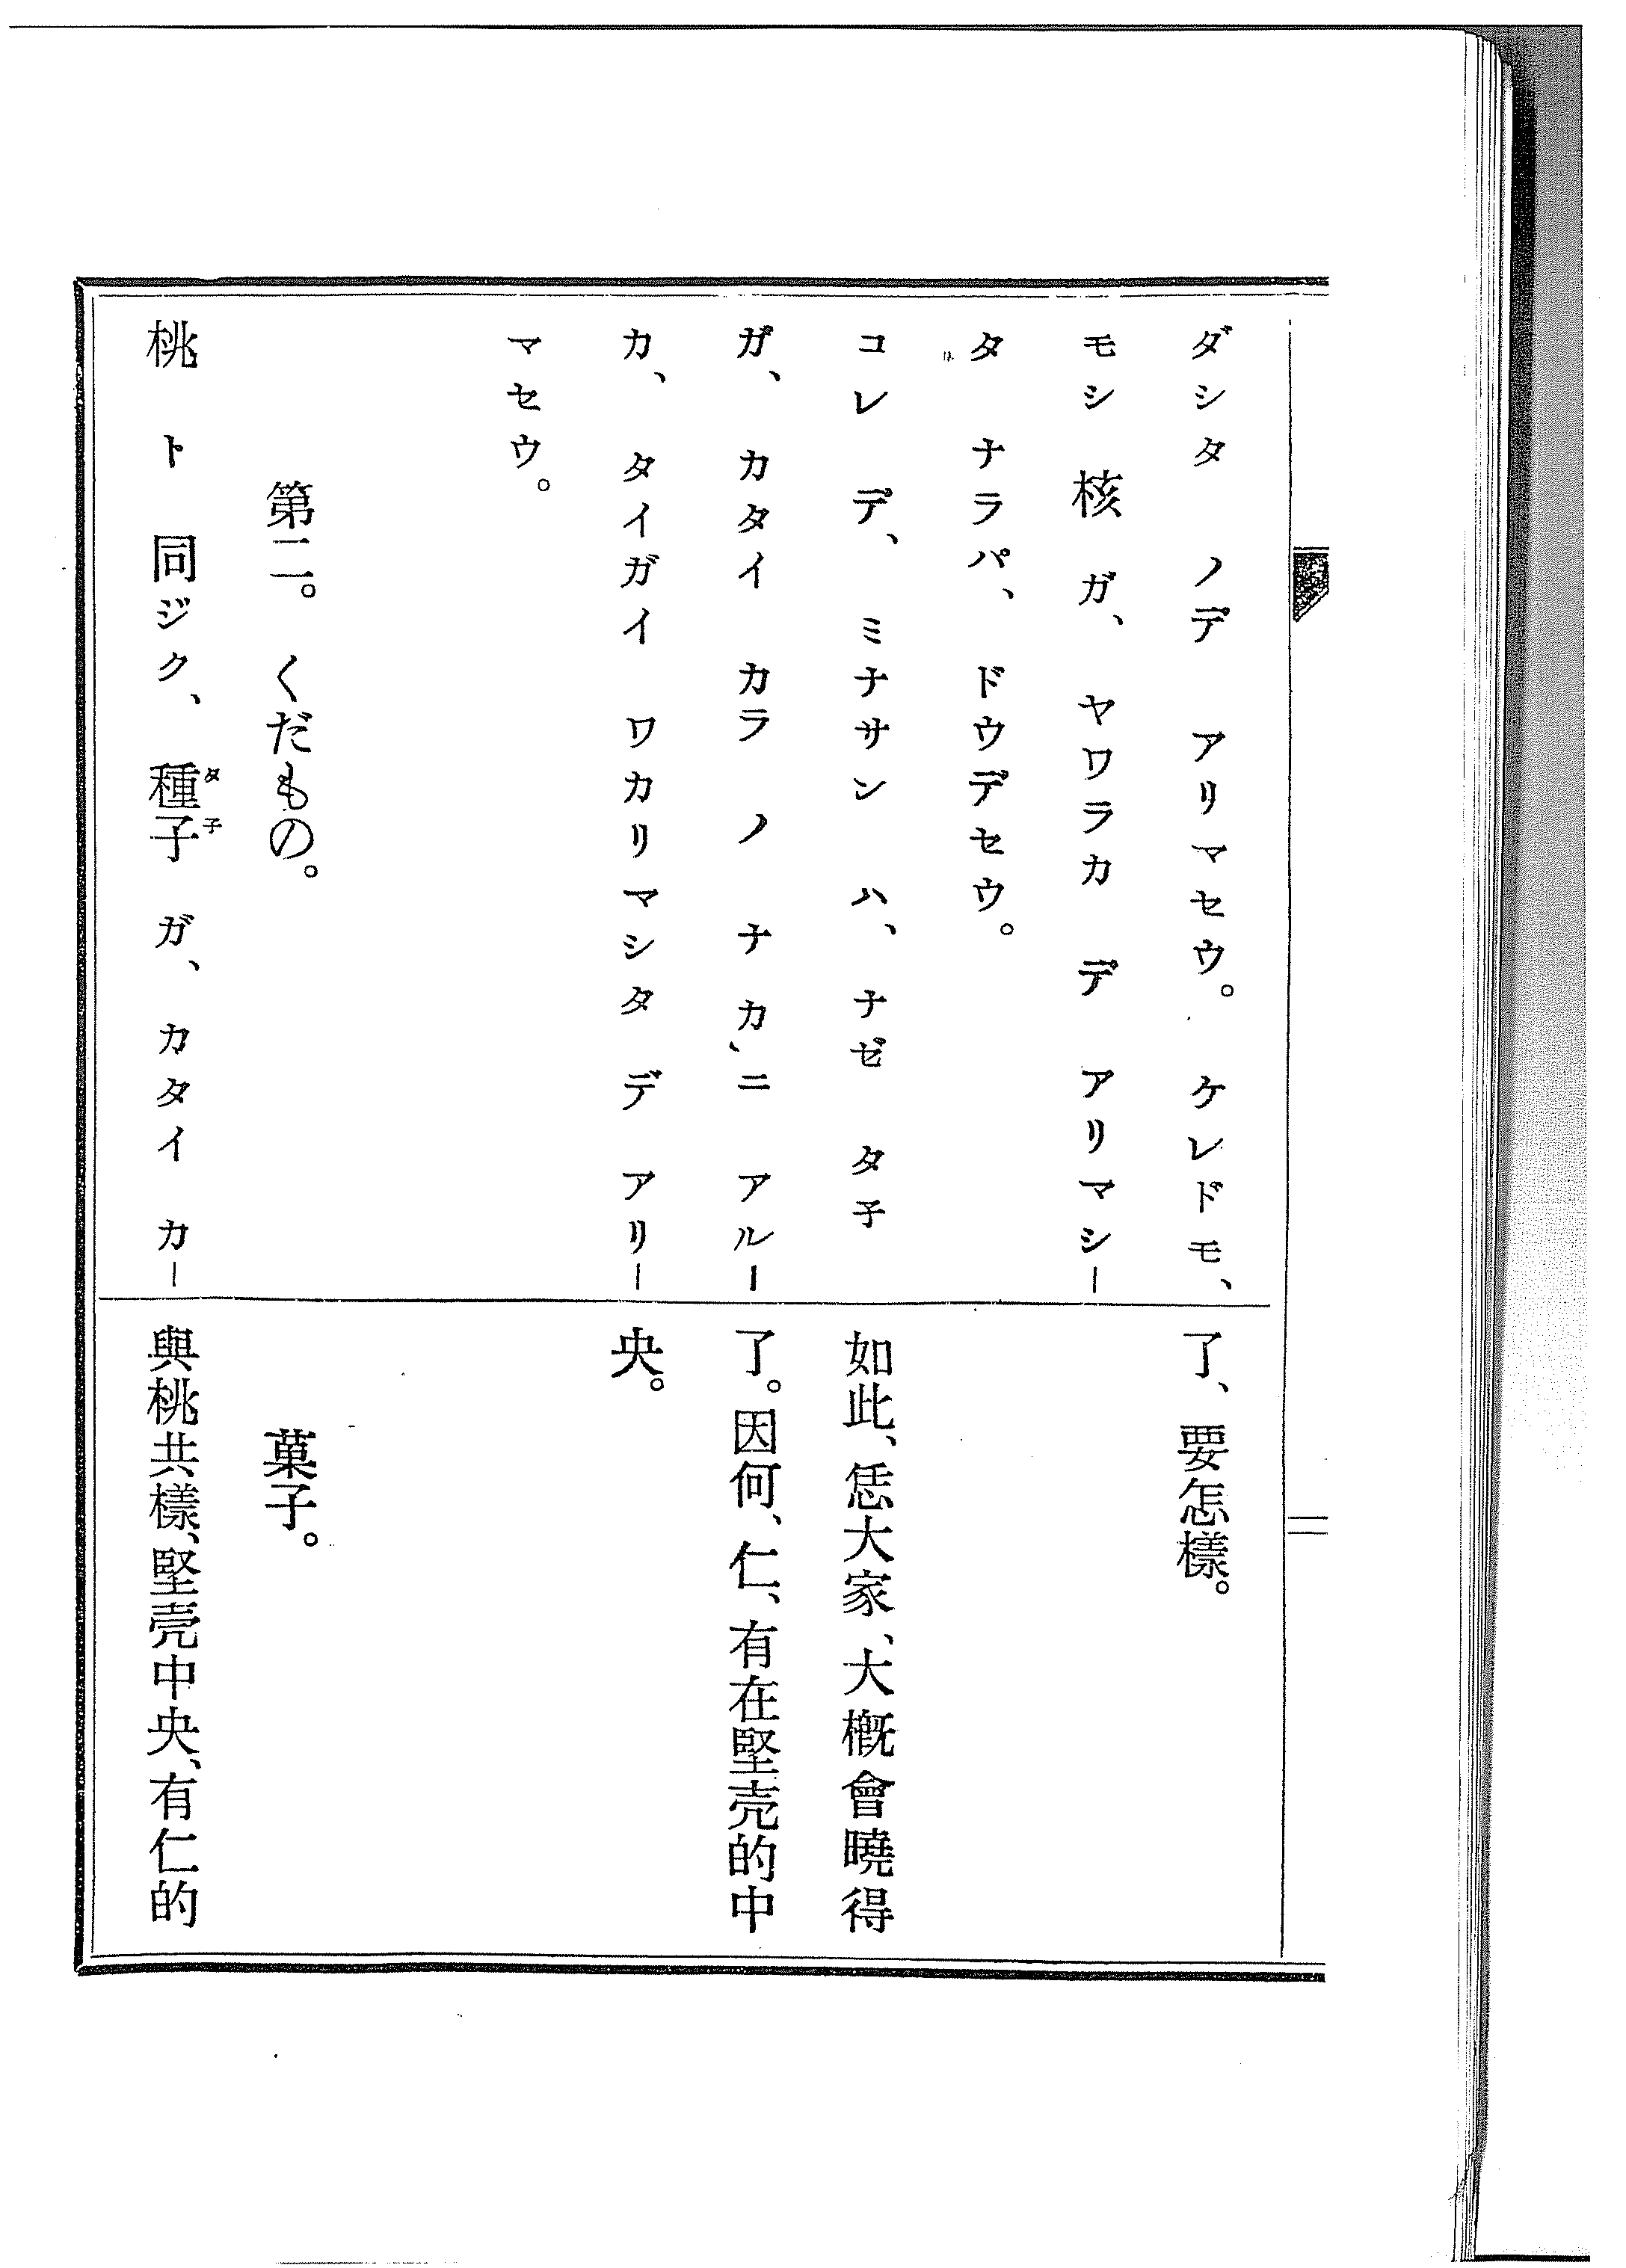 ダシタ ノデ アリマセウ。 ケレドモ、
モシ 核 ガ、 ヤワラカ デ アリマシー
タ ナラバ、 ドウデセウ。
コレ デ、 ミナサン ハ、 ナゼ タ子
ガ、 カタイ カラ ノ ナカ、ニ アルー
カ、 タイガイ ワカリマシタ デ アリー
マセウ。
第二。 くだもの。
桃 ト 同ジク、 種子 ガ、 カタイ カー
タ子
了、要怎樣。
如此、恁大家、大概會曉得
了。因何、仁、有在堅壳的中
央。
菓子。
與桃共樣、堅壳中央、有仁的
二